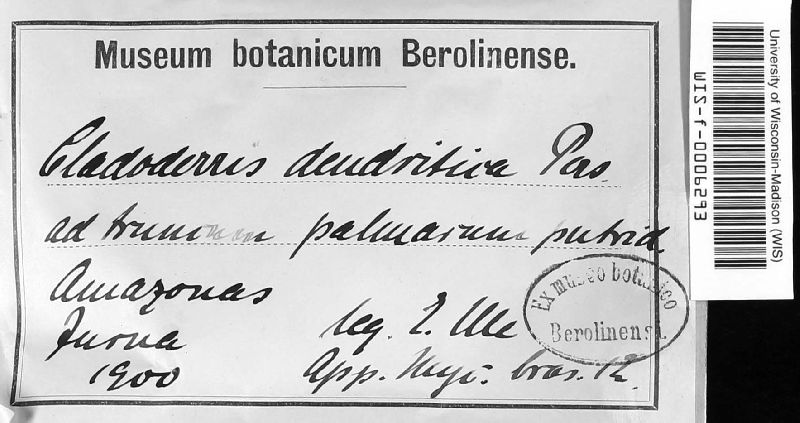 Museum botanicum Berolinense.
Cladoderris dendritica Pers
ad truncum palmarum putrid.
Amazonas
Jurua leg. E. Ule
1900 App. Myc. bras. 12.
Ex museo botanico
Berolinensi.
University of Wisconsin-Madison (WIS)
WIS-f-0006293